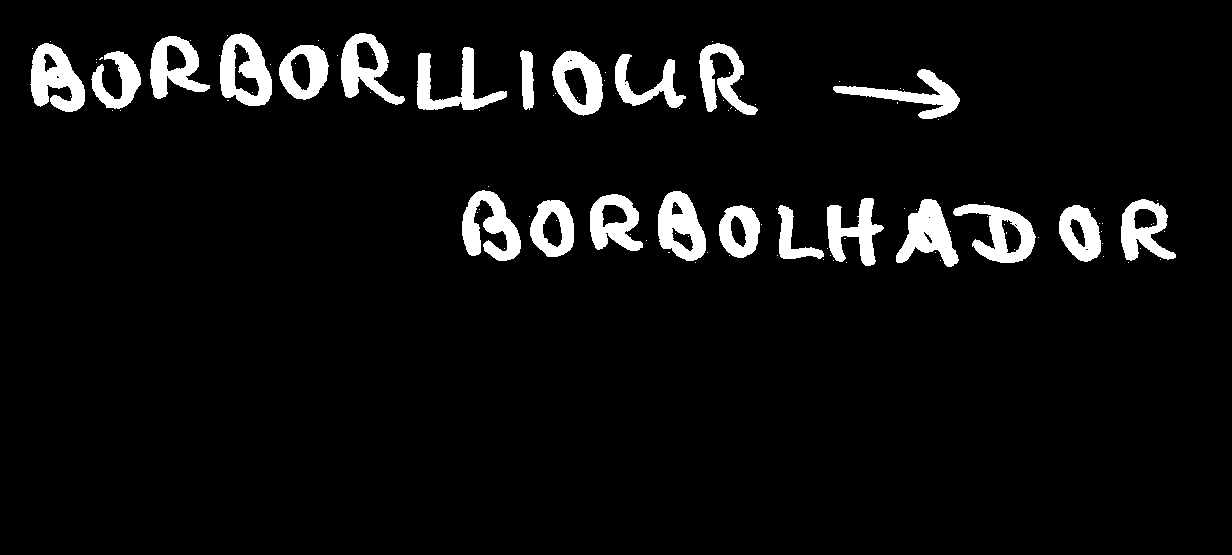 BORBORLLIOUR →
BORBOLHADOR